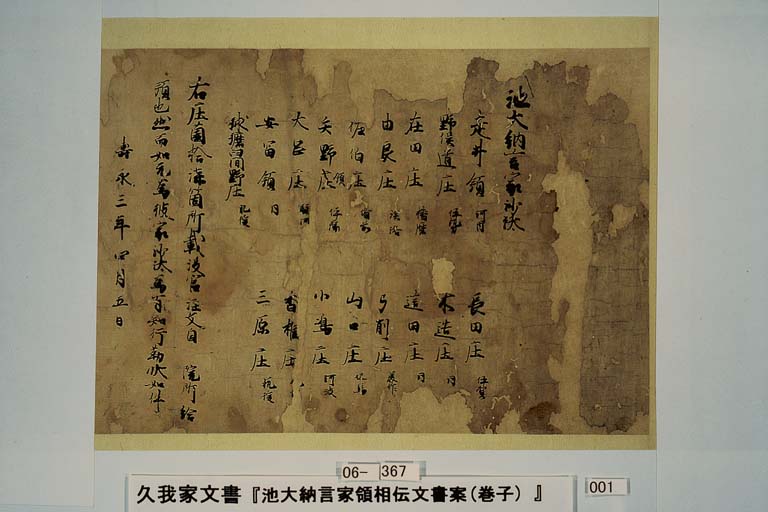 池大納言家沙汰
走井領 河内
長田庄 伊賀
野俣道庄 伊勢
木造庄 同
石田庄 播磨
這田庄 同
由良庄 淡路
弓削庄 美作
佐伯庄 備前
山口庄 但馬
矢野領 伊予
小嶋庄 阿波
大岡庄 駿河
香椎庄
安富領 同
三原庄 筑後
球磨臼間野庄 肥後
右庄園拾陸箇所載没官注文自 院所給
預也然而如元為彼家沙汰為有知行勒状如件
寿永三年四月五日
06-367
久我家文書『池大納言家領相伝文書案(巻子)』
001